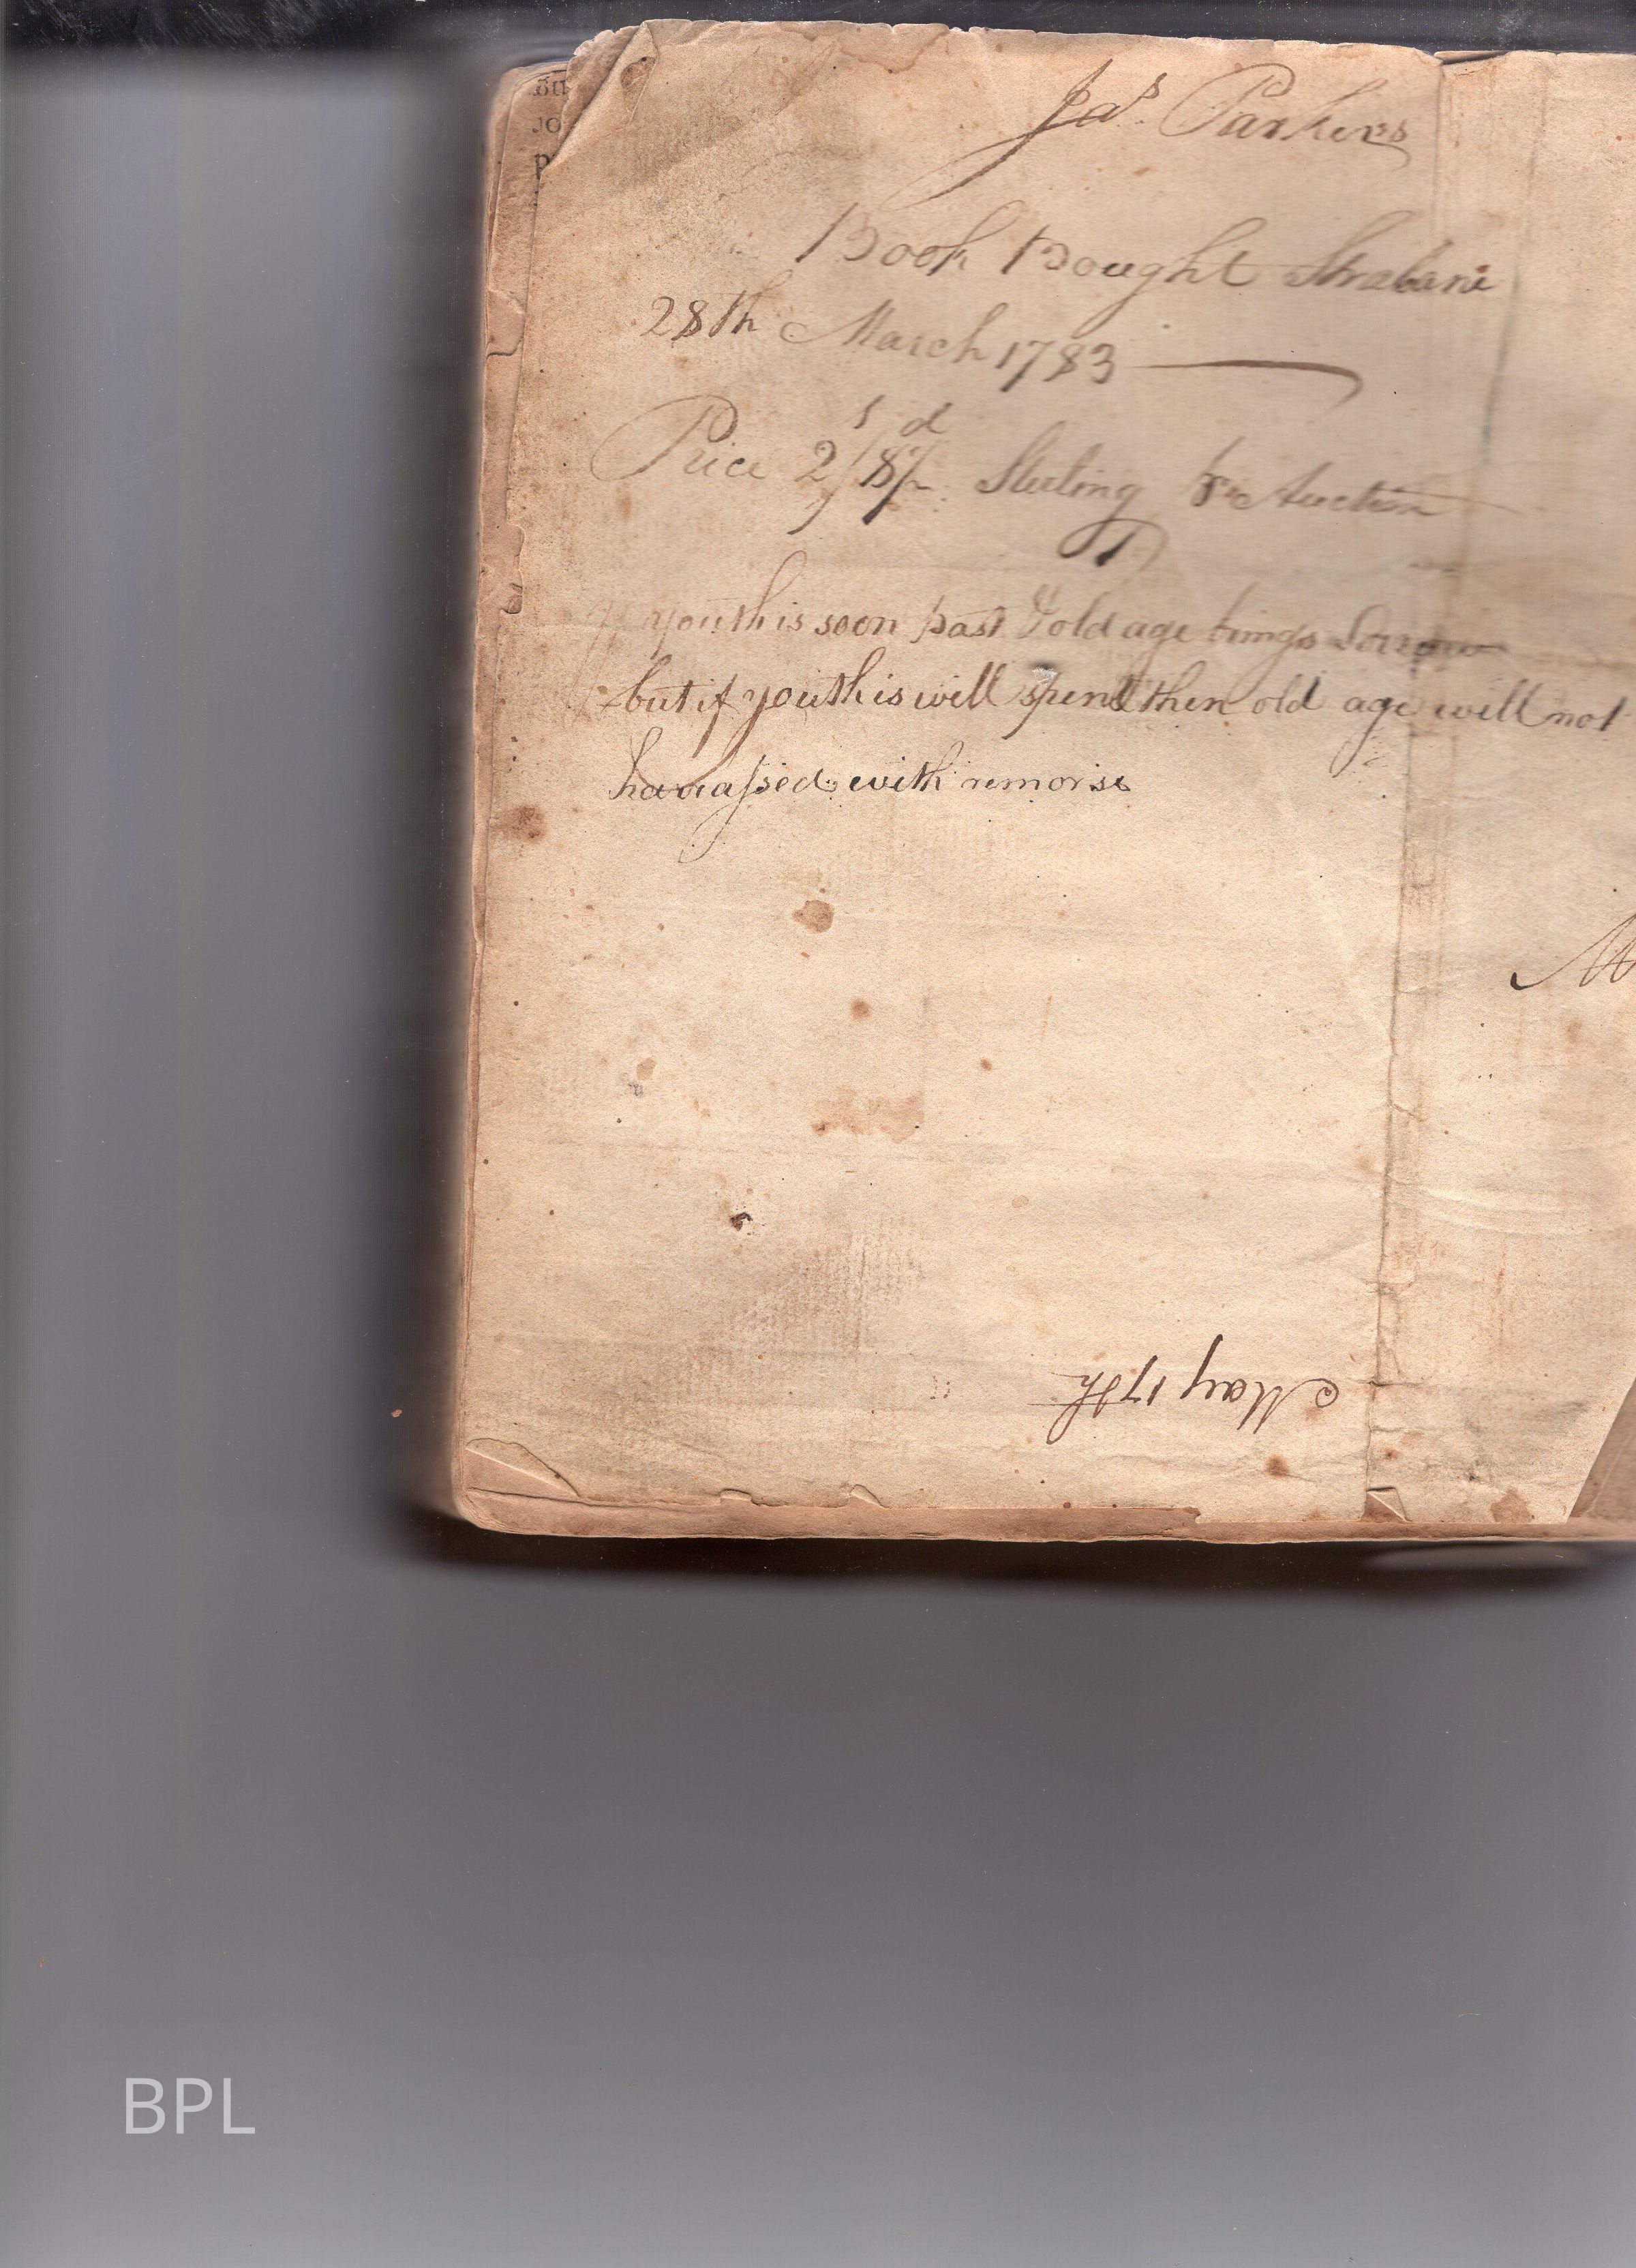 Jas Parkers
Book Bought Strabane
28th March 1783
Price 2s/8d/ Sterling Auction
youth is soon past & old age brings Sorrow
but if youth is well spent then old age will not
harrassed with remorse
M
May 17th
BPL